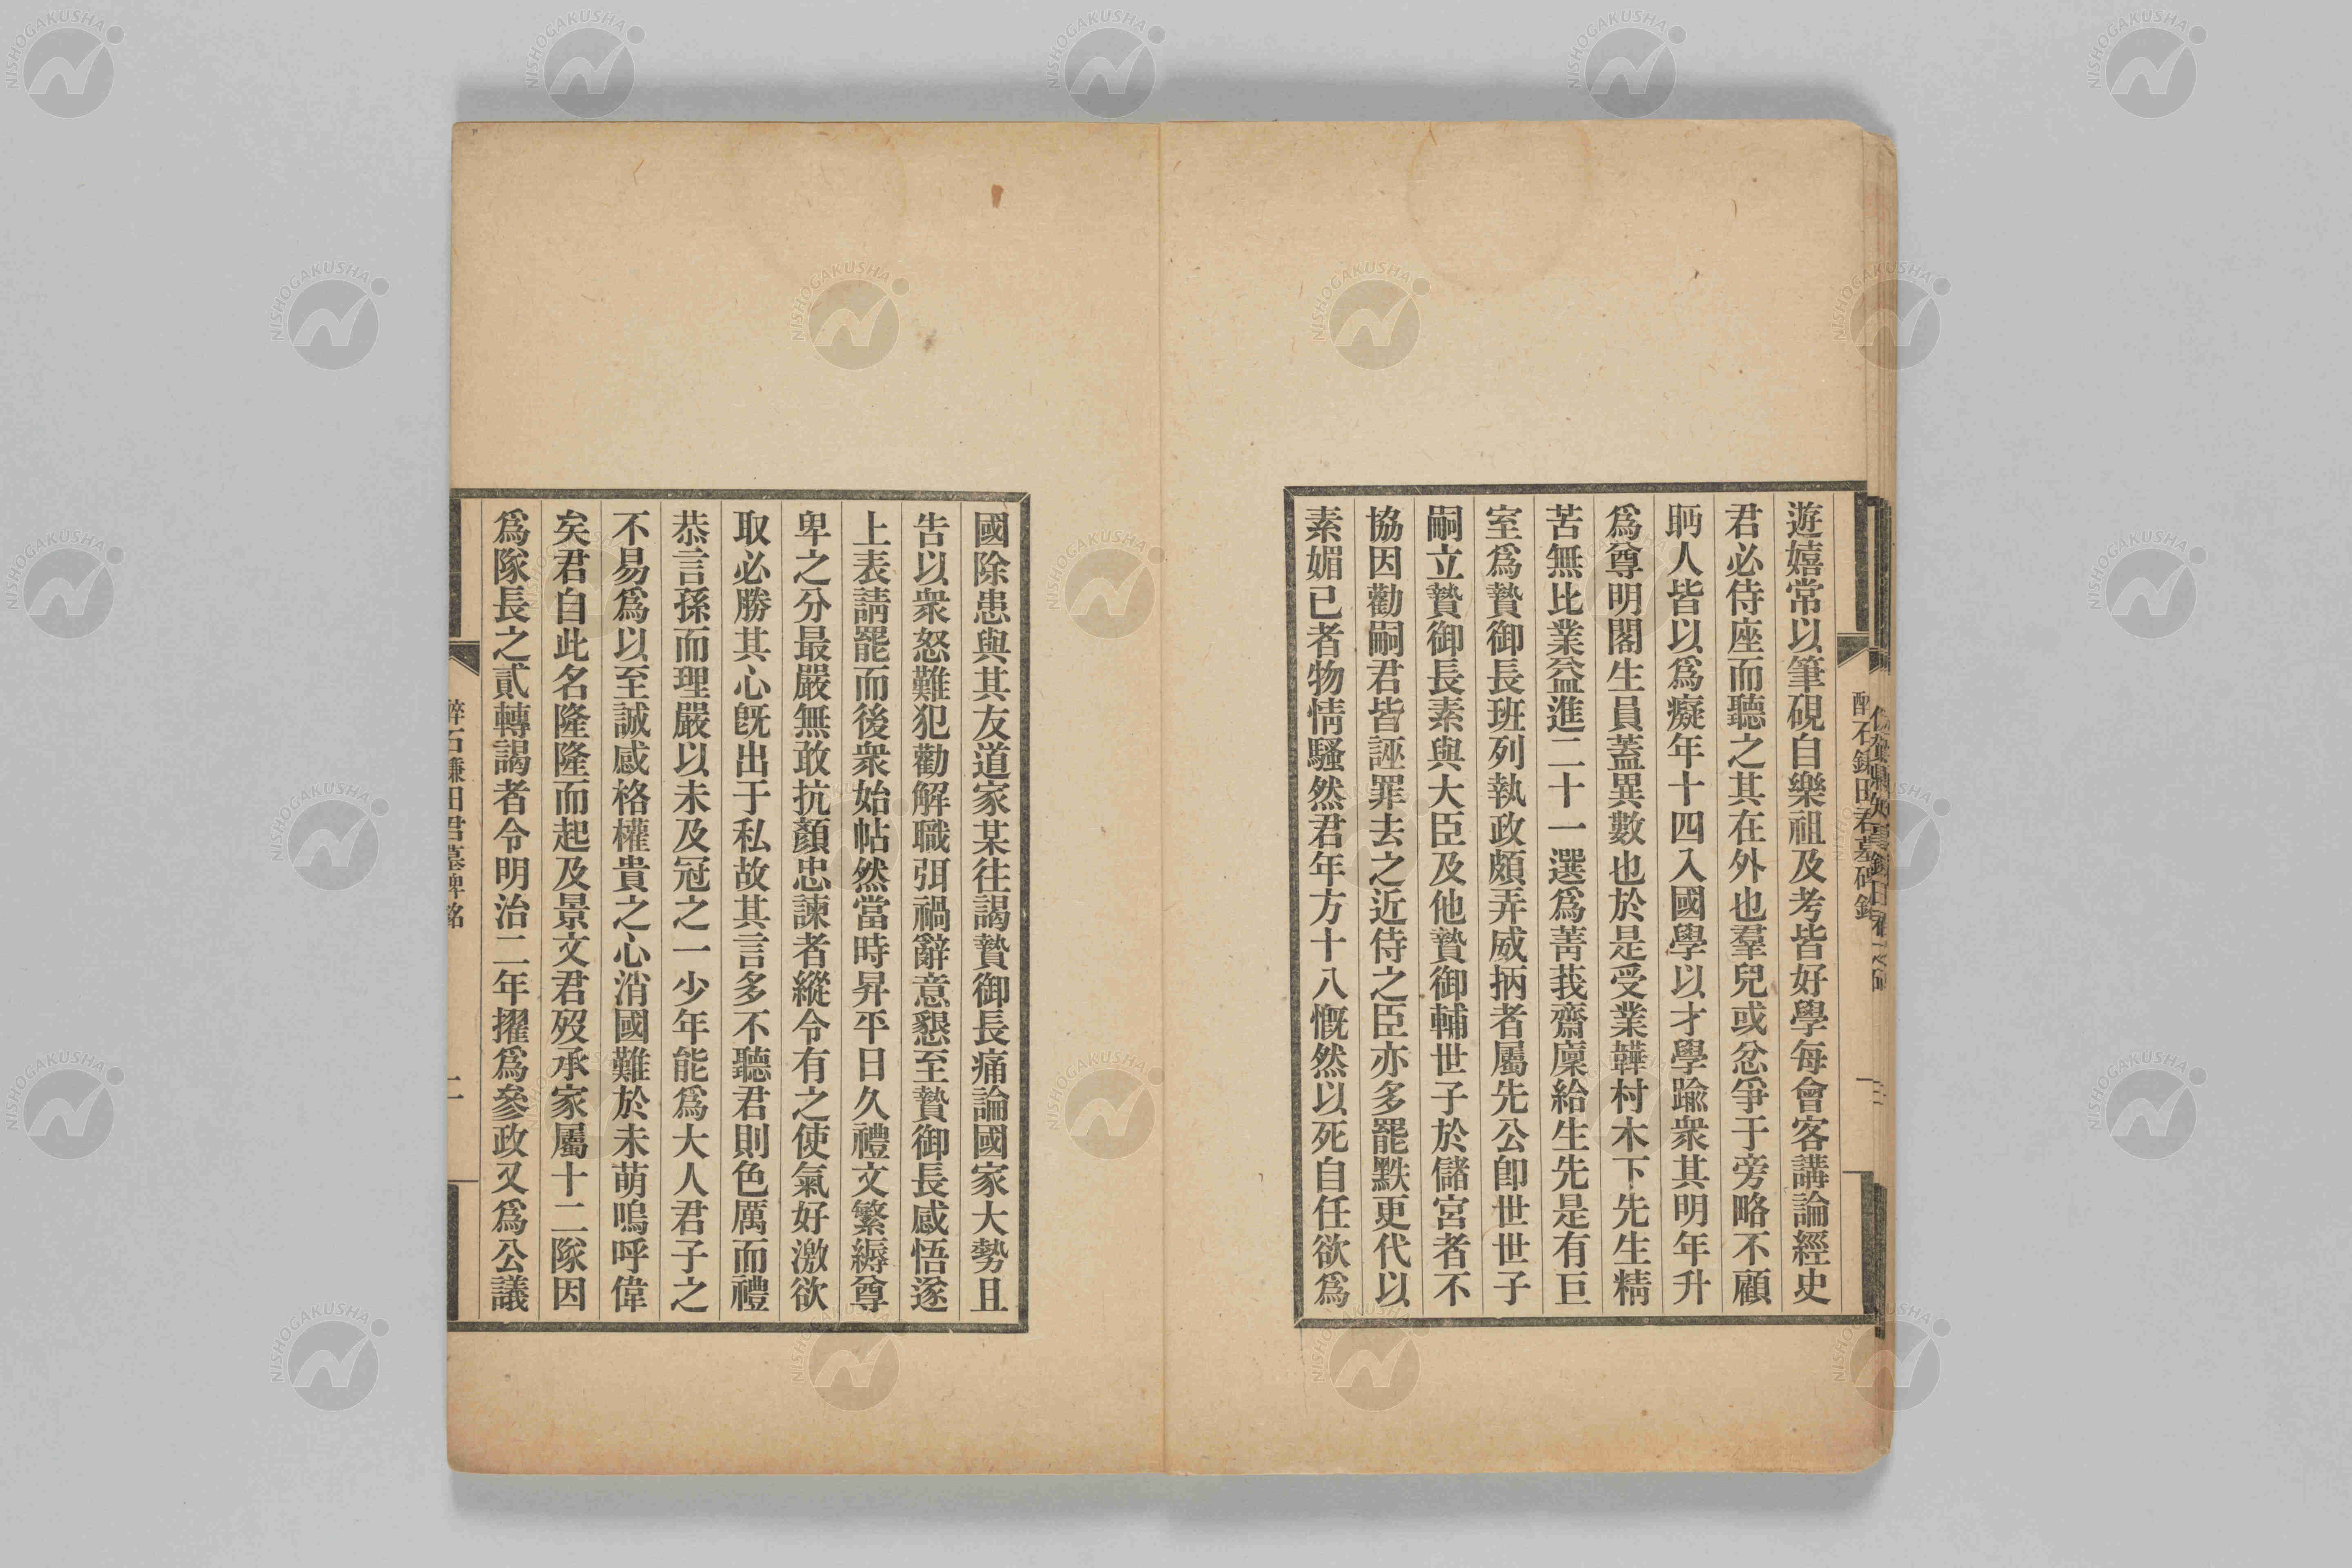 遊嬉常以筆硯自樂祖及考皆好學每會客講論經史
君必侍座而聽之其在外也羣兒或忿爭于旁略不顧
眄人皆以爲癡年十四入國學以才學踰衆其明年升
爲尊明閣生員蓋異數也於是受業韡村木下先生精
苦無比業益進二十一選爲菁莪齋廩給生先是有巨
室爲贄御長班列執政頗弄威柄者屬先公卽世世子
嗣立贄御長素與大臣及他贄御輔世子於儲宮者不
協因勸嗣君皆誣罪去之近侍之臣亦多罷黜更代以
素媚已者物情騷然君年方十八慨然以死自任欲爲
國除患與其友道家某往謁贄御長痛論國家大勢且
告以衆怒難犯勸解職弭禍辭意懇至贄御長感悟遂
上表請罷而後衆始帖然當時昇平日久禮文繁縟尊
卑之分最嚴無敢抗顏忠諫者縱令有之使氣好激欲
取必勝其心旣出于私故其言多不聽君則色厲而禮
恭言孫而理嚴以未及冠之一少年能爲大人君子之
不易爲以至誠感格權貴之心消國難於未萌嗚呼偉
矣君自此名隆隆而起及景文君歿承家屬十二隊因
爲隊長之貳轉謁者令明治二年擢爲參政又爲公議
醉石鎌田君墓碑銘
二
NISHOGAKUSHA